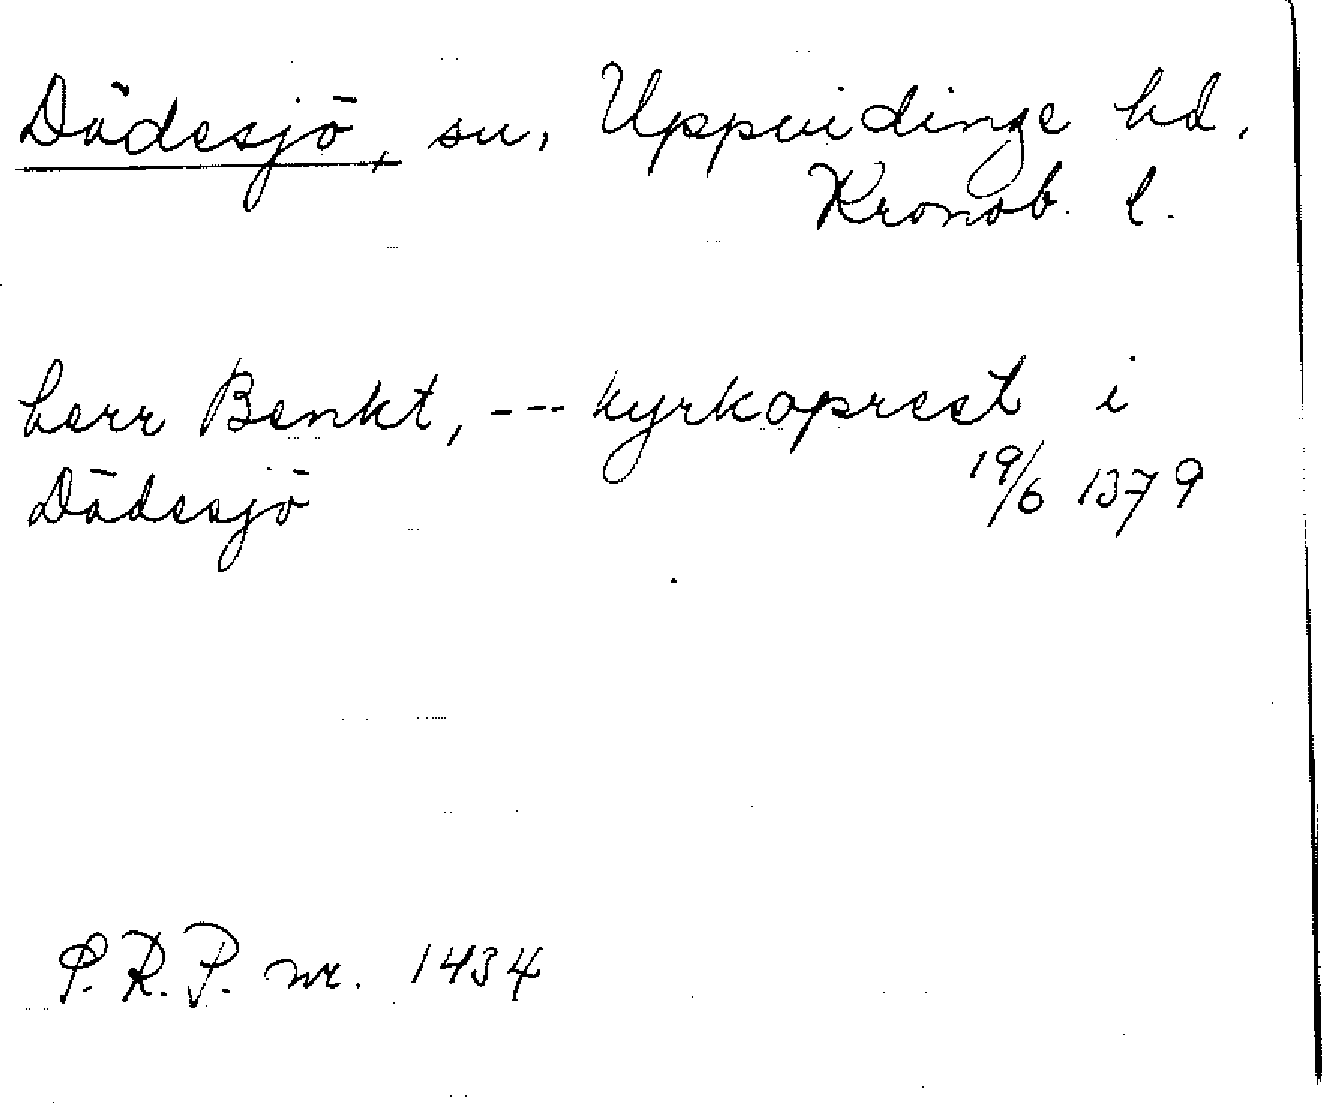 Dädesjö, sn, Uppvidinge hd.
Kronob. l.
herr Benkt, --- kyrkoprest i
Dädesjö 19/6 1379
P.R.P. nr. 1434